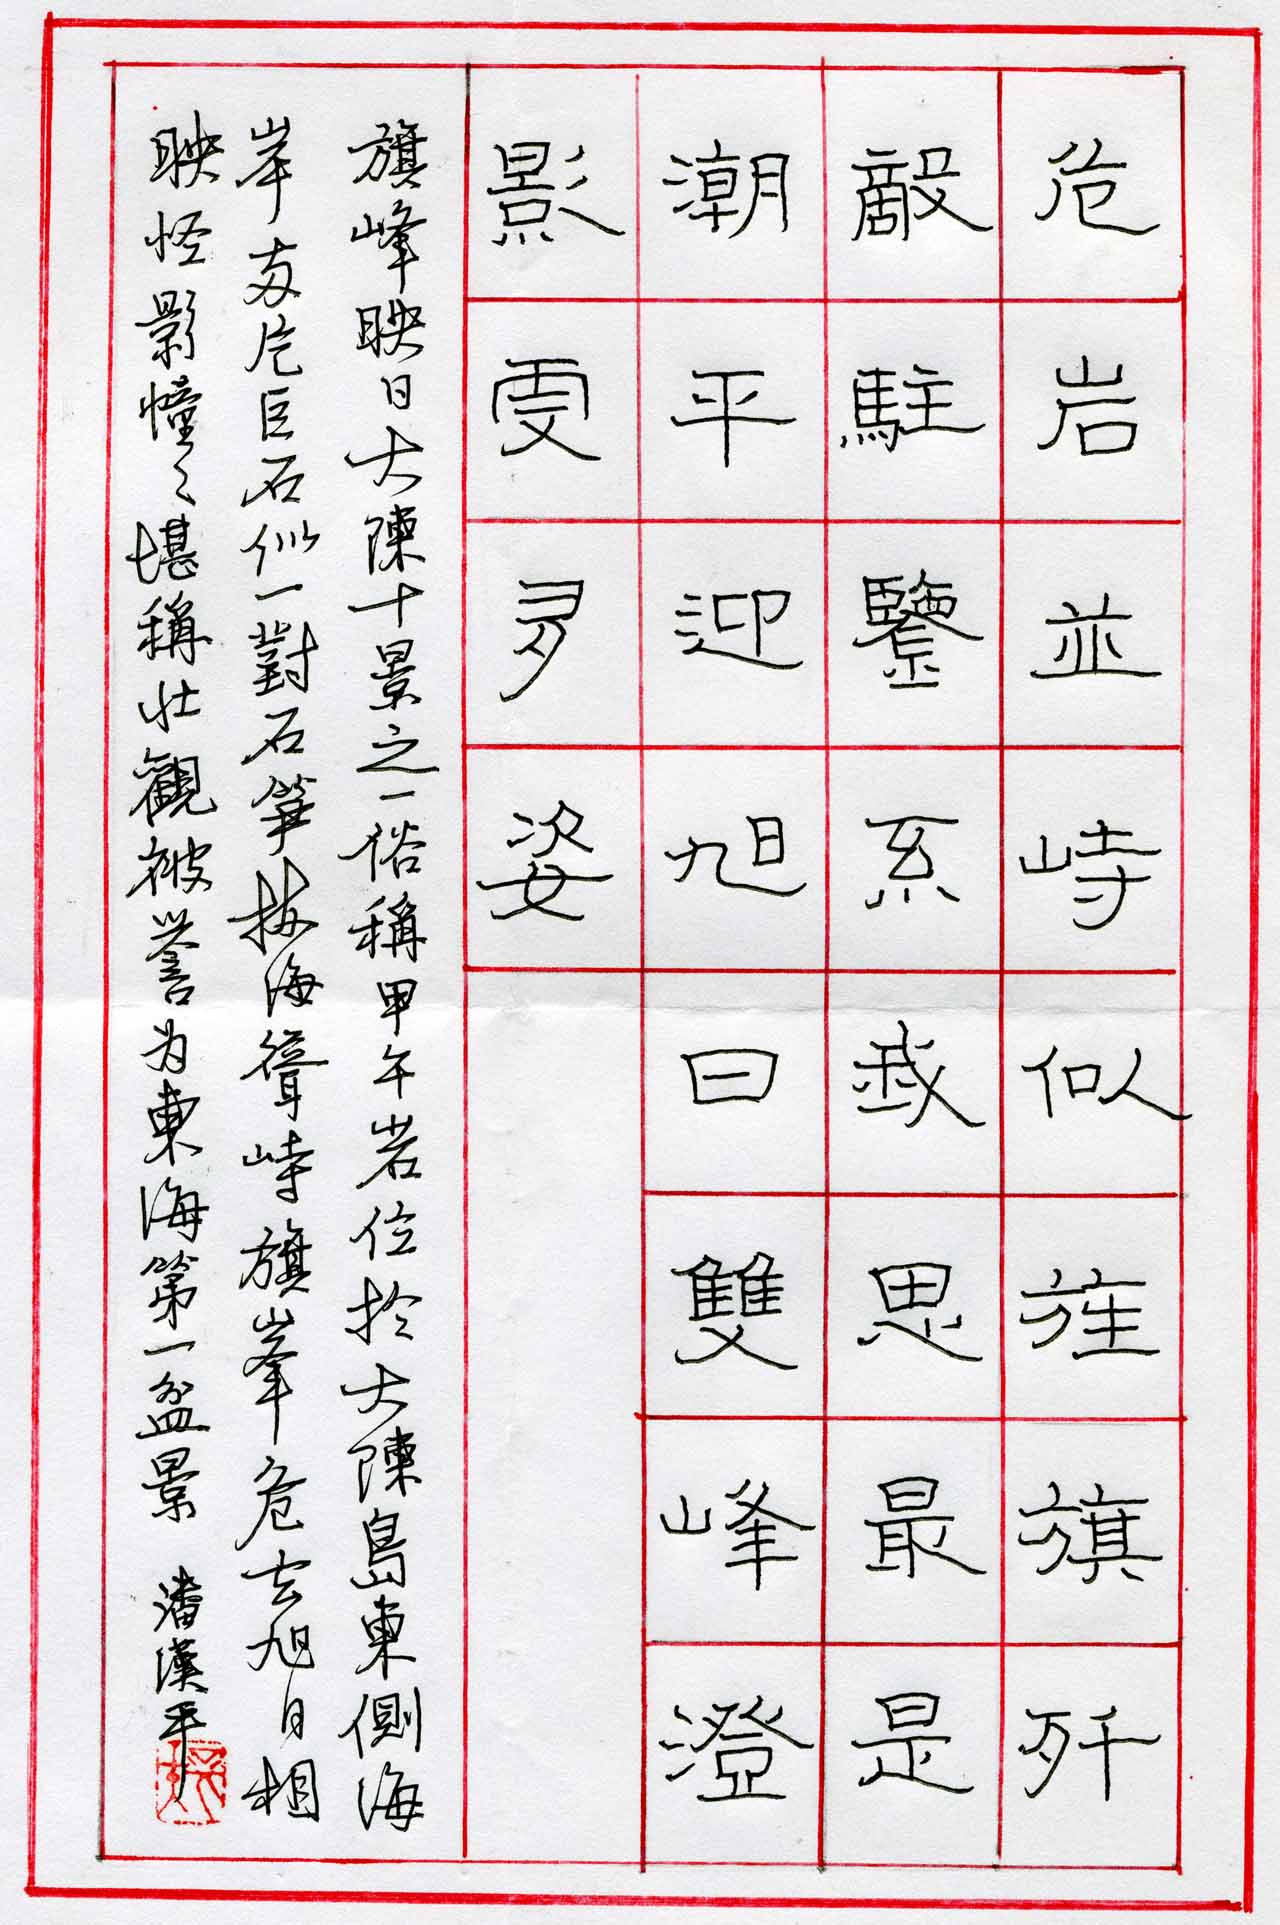 危岩並峙似旌旗歼
敵駐鑒系我思最是
潮平迎旭日雙峰澄
影雯多姿
旗峰映日大陳十景之一俗稱甲午岩位於大陳島東側海
岸两片巨石似一對石筆拔海聳峙旗峯危立旭日相
映怪影憧々堪稱壯觀被誉为東海第一盆景 潘漢平